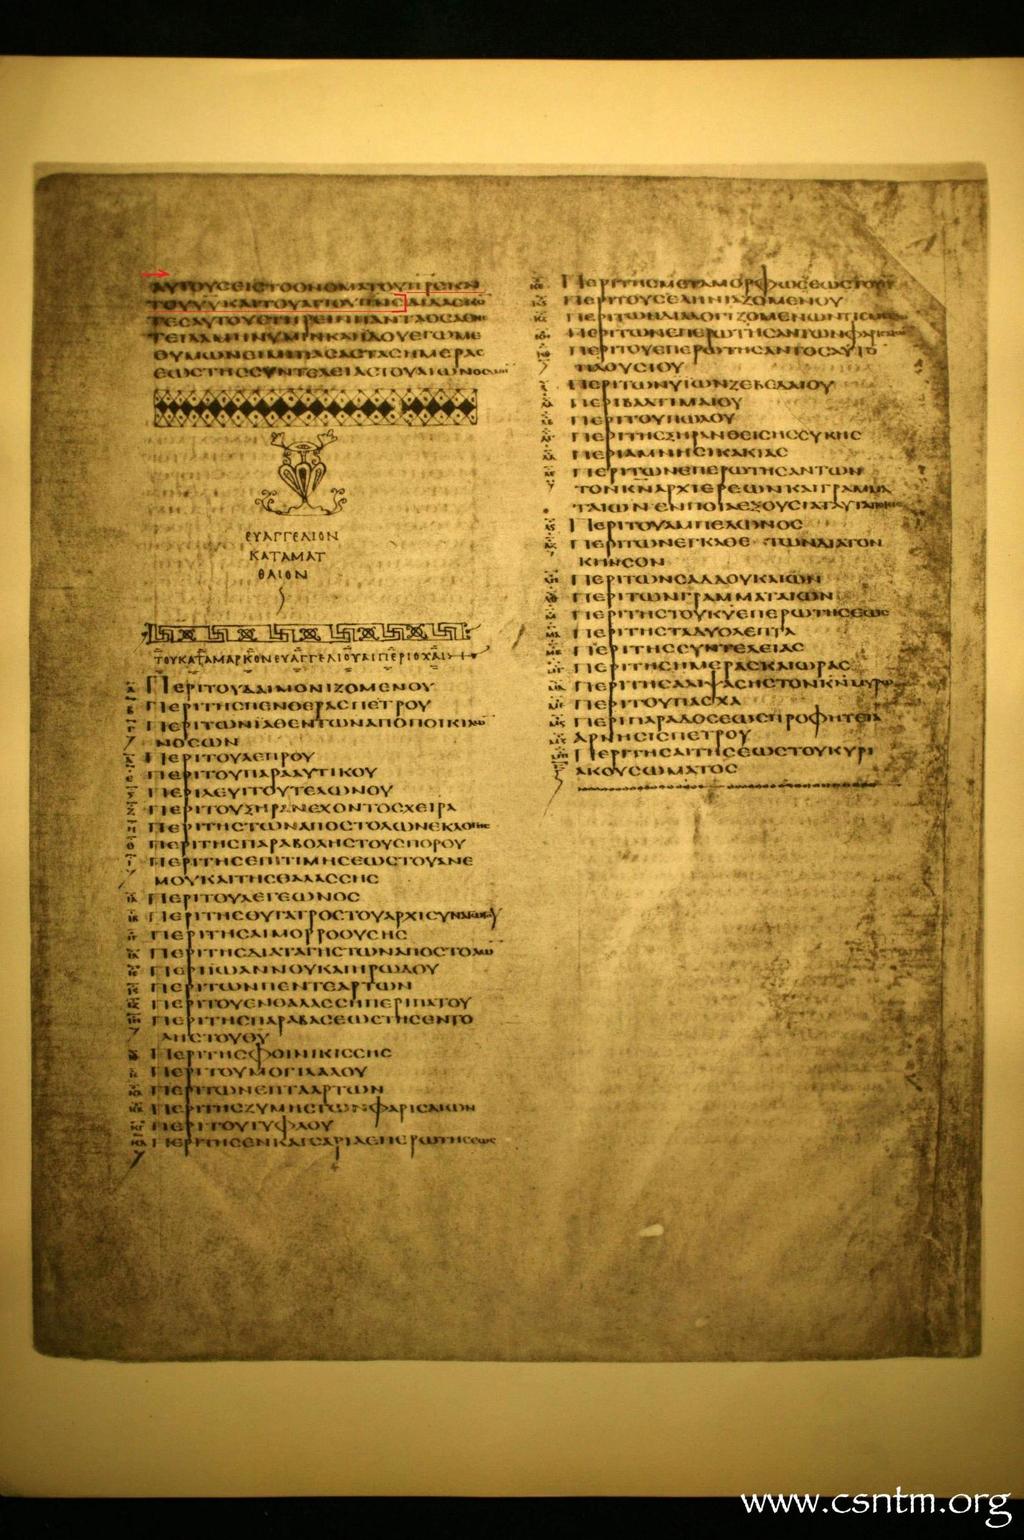 ΑΥΤΟΥΣΕΙΣΤΟΟΝΟΜΑΤΟΥΠΡΣΚΑΙ
ΤΟΥΥΥΚΑΙΤΟΥΑΓΙΟΥΠΝΣΔΙΔΑΣΚΟ
ΤΕΣΑΥΤΟΥΣΤΗΡΕΙΝΠΑΝΤΑΟΣΑΕΝΕ
ΤΕΙΛΑΜΗΝΥΜΙΝΚΑΙΙΔΟΥΕΓΩΜΕ
ΘΥΜΩΝΕΙΜΙΠΑΣΑΣΤΑΣΗΜΕΡΑΣ
ΕΩΣΤΗΣΣΥΝΤΕΛΕΙΑΣΤΟΥΑΙΩΝΟΣ
ΕΥΑΓΓΕΛΙΟΝ
ΚΑΤΑΜΑΤ
ΘΑΙΟΝ
ΤΟΥΚΑΤΑΜΑΡΚΟΝΕΥΑΓΓΕΛΙΟΥΑΙΠΕΡΙΟΧΑΙ
Α ΠΕΡΙΤΟΥΔΑΙΜΟΝΙΖΟΜΕΝΟΥ
Β ΠΕΡΙΤΗΣΠΕΝΘΕΡΑΣΠΕΤΡΟΥ
Γ ΠΕΡΙΤΩΝΙΑΘΕΝΤΩΝΑΠΟΠΟΙΚΙΛΩ
ΝΟΣΩΝ
Δ ΠΕΡΙΤΟΥΛΕΠΡΟΥ
Ε ΠΕΡΙΤΟΥΠΑΡΑΛΥΤΙΚΟΥ
Ϛ ΠΕΡΙΛΕΥΙΤΟΥΤΕΛΩΝΟΥ
Ζ ΠΕΡΙΤΟΥΞΗΡΑΝΕΧΟΝΤΟΣΧΕΙΡΑ
Η ΠΕΡΙΤΗΣΤΩΝΑΠΟΣΤΟΛΩΝΕΚΛΟΓΗΣ
Θ ΠΕΡΙΤΗΣΠΑΡΑΒΟΛΗΣΤΟΥΣΠΟΡΟΥ
Ι ΠΕΡΙΤΗΣΕΠΙΤΙΜΗΣΕΩΣΤΟΥΑΝΕ
ΜΟΥΚΑΙΤΗΣΘΑΛΑΣΣΗΣ
ΙΑ ΠΕΡΙΤΟΥΛΕΓΕΩΝΟΣ
ΙΒ ΠΕΡΙΤΗΣΘΥΓΑΤΡΟΣΤΟΥΑΡΧΙΣΥΝΑΓΩΓΟΥ
ΙΓ ΠΕΡΙΤΗΣΑΙΜΟΡΡΟΟΥΣΗΣ
ΙΔ ΠΕΡΙΤΗΣΔΙΑΤΑΓΗΣΤΩΝΑΠΟΣΤΟΛΩ
ΙΕ ΠΕΡΙΙΩΑΝΝΟΥΚΑΙΗΡΩΔΟΥ
ΙϚ ΠΕΡΙΤΩΝΠΕΝΤΕΑΡΤΩΝ
ΙΖ ΠΕΡΙΤΟΥΕΝΘΑΛΑΣΣΗΠΕΡΙΠΑΤΟΥ
ΙΗ ΠΕΡΙΤΗΣΠΑΡΑΒΑΣΕΩΣΤΗΣΕΝΤΟ
ΛΗΣΤΟΥΘΥ
ΙΘ ΠΕΡΙΤΗΣΦΟΙΝΙΚΙΣΣΗΣ
Κ ΠΕΡΙΤΟΥΜΟΓΙΛΑΛΟΥ
ΚΑ ΠΕΡΙΤΩΝΕΠΤΑΑΡΤΩΝ
ΚΒ ΠΕΡΙΤΗΣΖΥΜΗΣΤΩΝΦΑΡΙΣΑΙΩΝ
ΚΓ ΠΕΡΙΤΟΥΤΥΦΛΟΥ
ΚΔ ΠΕΡΙΤΗΣΕΝΚΑΙΣΑΡΙΑΕΠΕΡΩΤΗΣΕΩΣ
ΚΕ ΠΕΡΙΤΗΣΜΕΤΑΜΟΡΦΩΣΕΩΣΤΟΥΙΥ
ΚϚ ΠΕΡΙΤΟΥΣΕΛΗΝΙΑΖΟΜΕΝΟΥ
ΚΖ ΠΕΡΙΤΩΝΔΙΑΛΟΓΙΖΟΜΕΝΩΝ
ΚΗ ΠΕΡΙΤΩΝΕΠΕΡΩΤΗΣΑΝΤΩΝΦΑΡΙΣΑΙΩΝ
ΚΘ ΠΕΡΙΤΟΥΕΠΕΡΩΤΗΣΑΝΤΟΣΑΥΤΟ
ΠΛΟΥΣΙΟΥ
Λ ΠΕΡΙΤΩΝΥΙΩΝΖΕΒΕΔΑΙΟΥ
ΛΑ ΠΕΡΙΒΑΡΤΙΜΑΙΟΥ
ΛΒ ΠΕΡΙΤΟΥΠΩΛΟΥ
ΛΓ ΠΕΡΙΤΗΣΞΗΡΑΝΘΕΙΣΗΣΣΥΚΗΣ
ΛΔ ΠΕΡΙΑΜΝΗΣΙΚΑΚΙΑΣ
ΛΕ ΠΕΡΙΤΩΝΕΠΕΡΩΤΗΣΑΝΤΩΝ
ΤΟΝΚΝΑΡΧΙΕΡΕΩΝΚΑΙΓΡΑΜΜΑ
ΤΑΙΩΝΕΝΠΟΙΑΕΞΟΥΣΙΑΤΑΥΤΑΠΟΙΕΙΣ
ΛϚ ΠΕΡΙΤΟΥΑΜΠΕΛΩΝΟΣ
ΛΖ ΠΕΡΙΤΩΝΕΓΚΑΘΕΤΩΝΔΙΑΤΟΝ
ΚΗΝΣΟΝ
ΛΗ ΠΕΡΙΤΩΝΣΑΔΔΟΥΚΑΙΩΝ
ΛΘ ΠΕΡΙΤΩΝΓΡΑΜΜΑΤΑΙΩΝ
Μ ΠΕΡΙΤΗΣΤΟΥΚΥΕΠΕΡΩΤΗΣΕΩΣ
ΜΑ ΠΕΡΙΤΗΣΤΑΔΥΟΛΕΠΤΑ
ΜΒ ΠΕΡΙΤΗΣΣΥΝΤΕΛΕΙΑΣ
ΜΓ ΠΕΡΙΤΗΣΗΜΕΡΑΣΚΑΙΩΡΑΣ
ΜΔ ΠΕΡΙΤΗΣΑΛΙΨΑΣΗΣΤΟΝΚΝΜΥΡΩ
ΜΕ ΠΕΡΙΤΟΥΠΑΣΧΑ
ΜϚ ΠΕΡΙΠΑΡΑΔΟΣΕΩΣΠΡΟΦΗΤΕΙΑ
ΜΖ ΑΡΝΗΣΙΣΠΕΤΡΟΥ
ΜΗ ΠΕΡΙΤΗΣΑΙΤΗΣΕΩΣΤΟΥΚΥΡΙ
ΑΚΟΥΣΩΜΑΤΟΣ
www.csntm.org